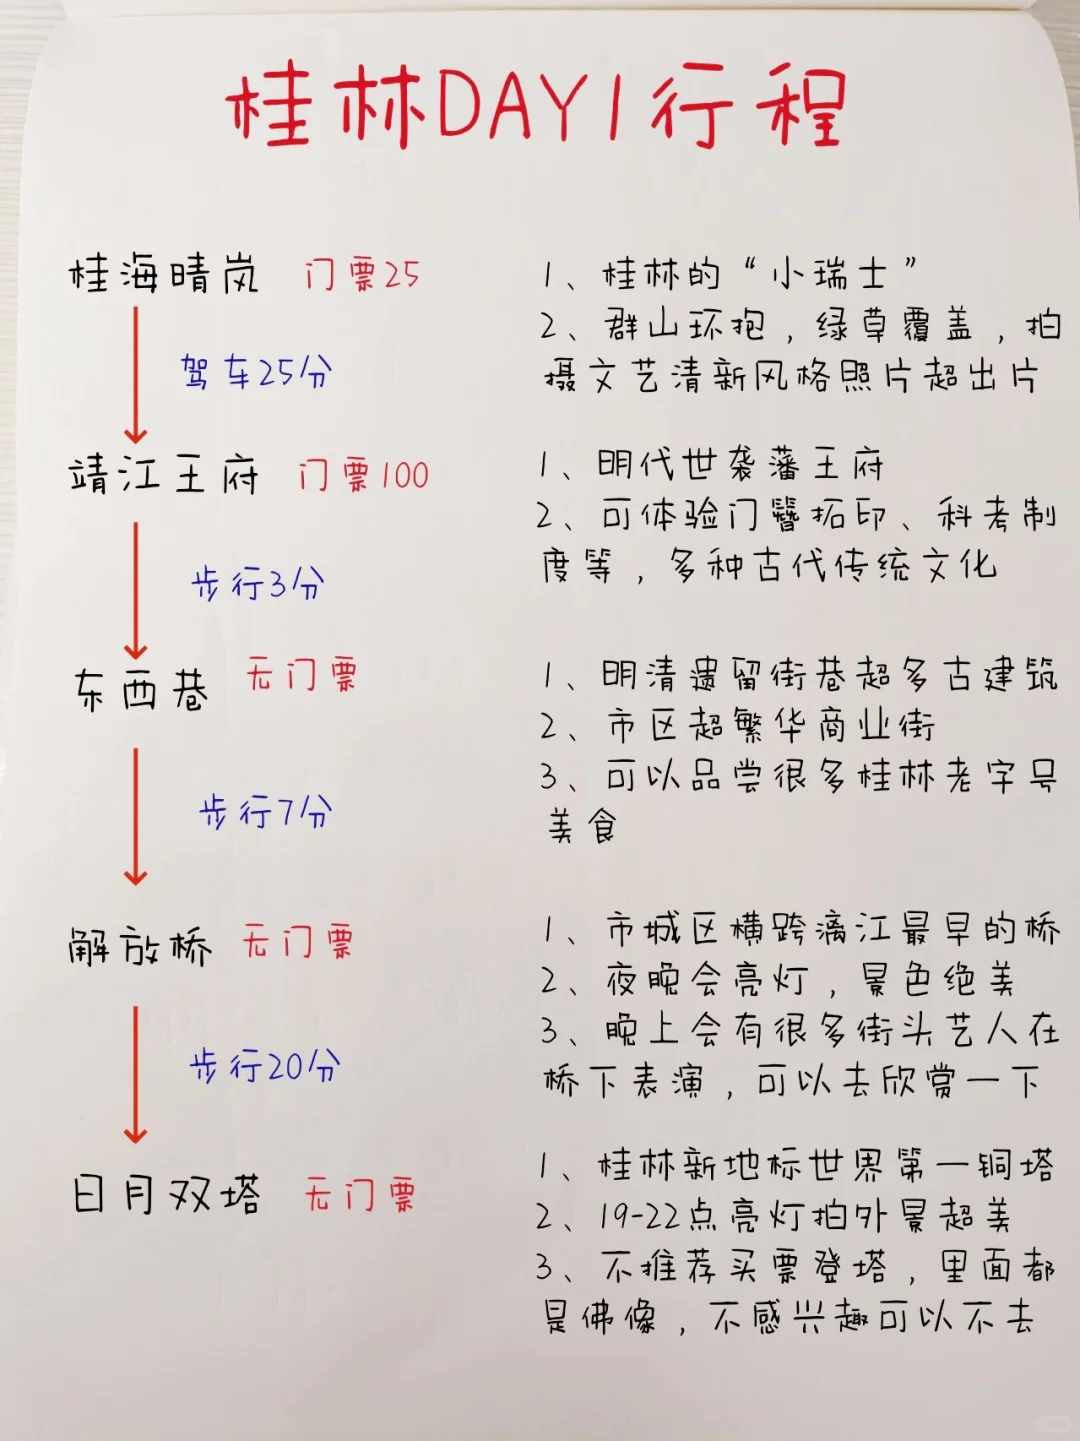 桂林DAY1行程
桂海晴岚 门票25
1、桂林的“小瑞士”
2、群山环抱，绿草覆盖，拍
摄文艺清新风格照片超出片
驾车25分
靖江王府 门票100
1、明代世袭藩王府
2、可体验门簪拓印、科考制
度等，多种古代传统文化
步行3分
东西巷 无门票
1、明清遗留街巷超多古建筑
2、市区超繁华商业街
3、可以品尝很多桂林老字号
美食
步行7分
解放桥 无门票
1、市城区横跨漓江最早的桥
2、夜晚会亮灯，景色绝美
3、晚上会有很多街头艺人在
桥下表演，可以去欣赏一下
步行20分
日月双塔 无门票
1、桂林新地标世界第一铜塔
2、19-22点亮灯拍外景超美
3、不推荐买票登塔，里面都
是佛像，不感兴趣可以不去